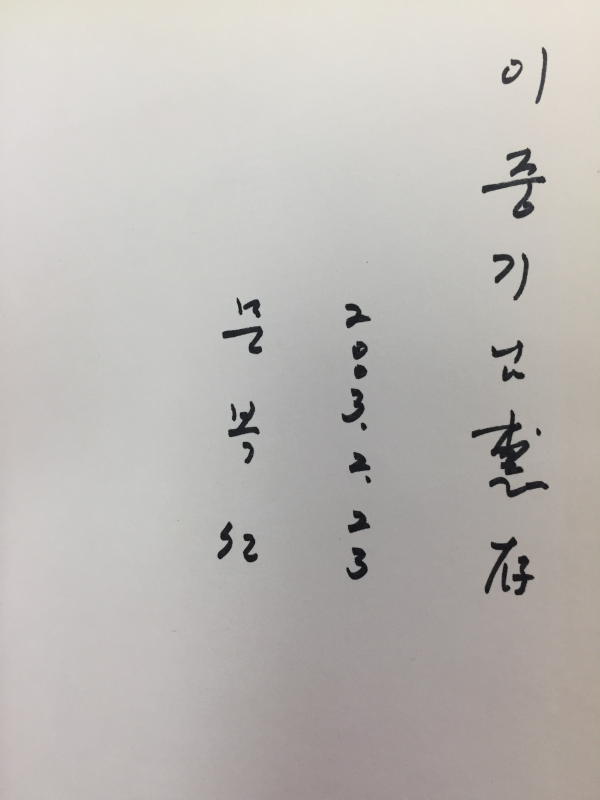 이중기님惠存
2003.2.23
문복희